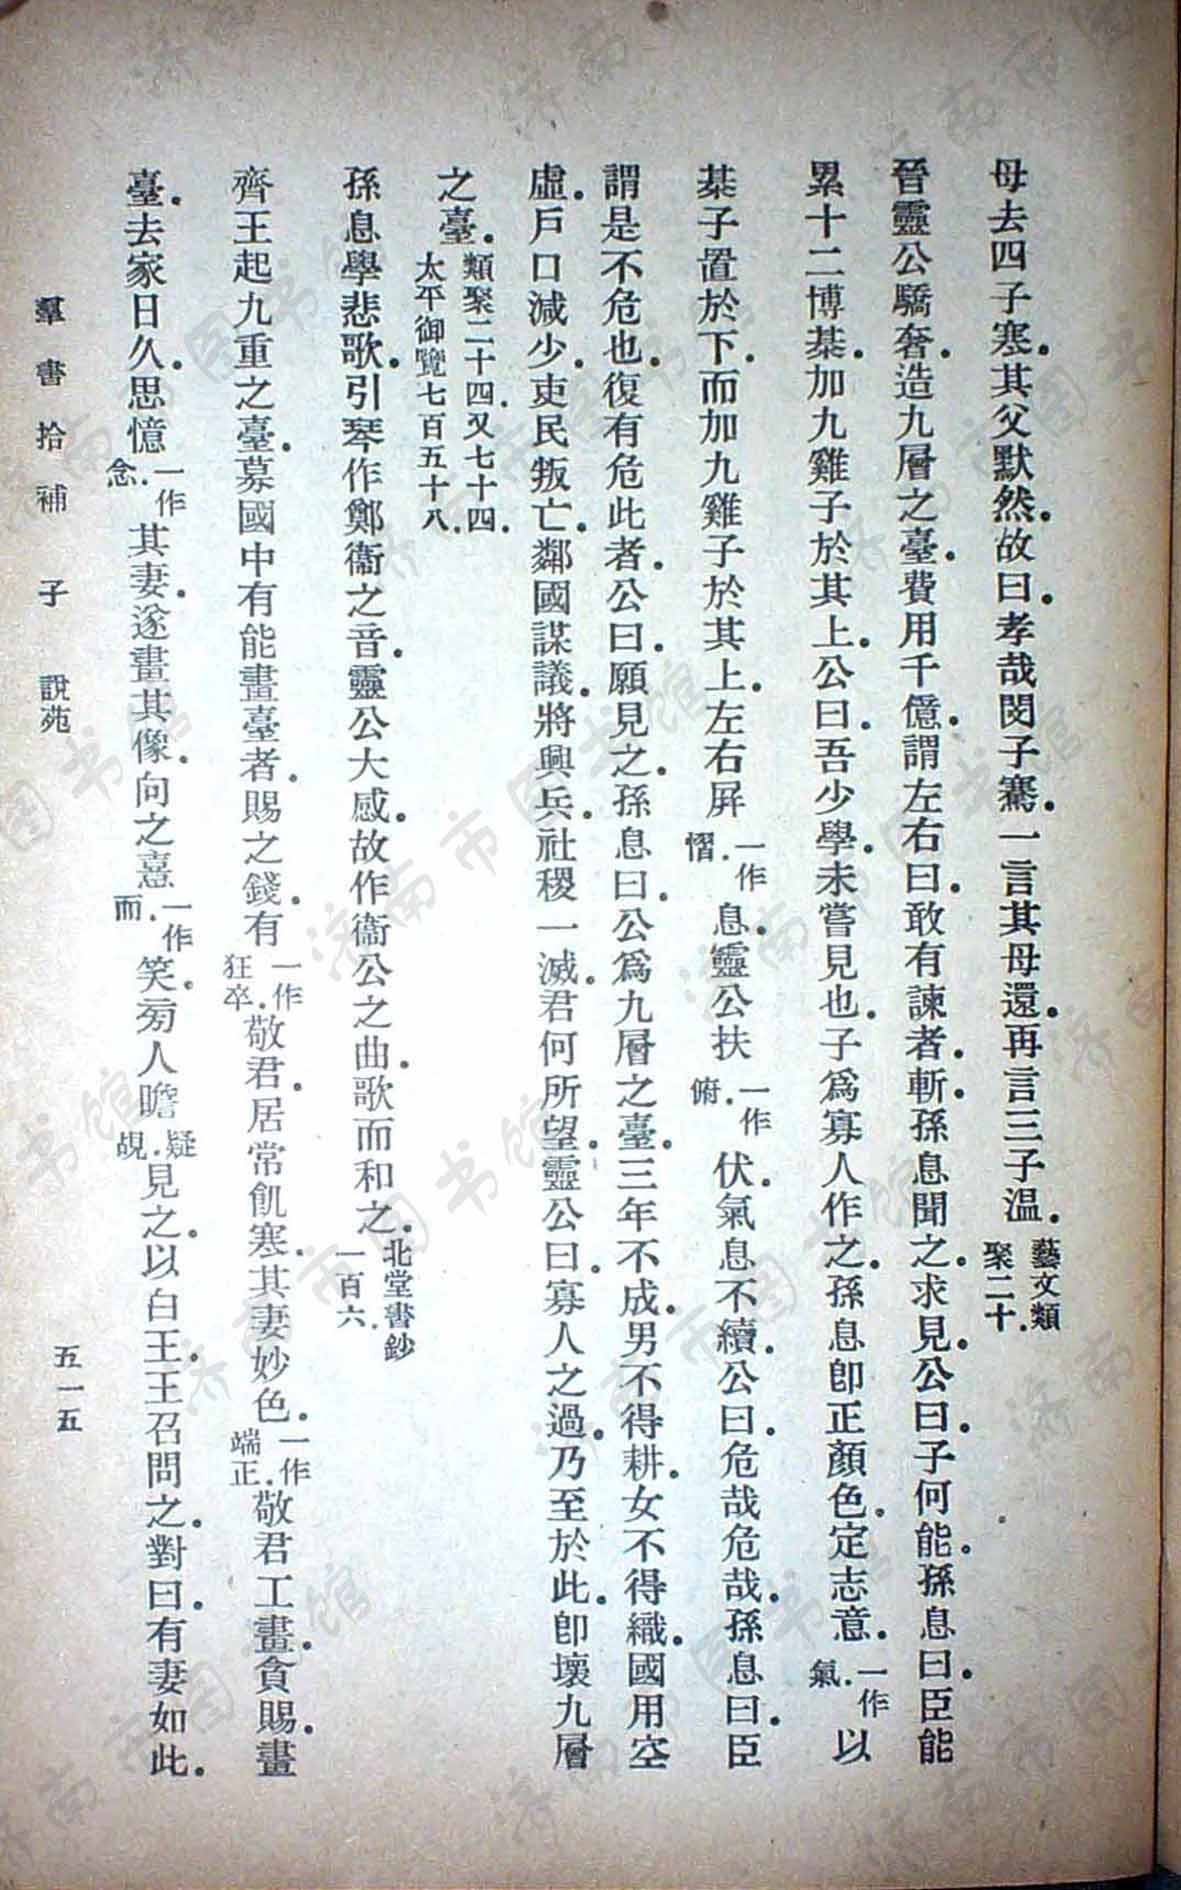 母去四子寒。其父默然。故曰。孝哉閔子騫。一言其母還。再言三子溫。藝文類聚二十。
晉靈公驕奢。造九層之臺。費用千億。謂左右曰。敢有諫者。斬。孫息聞之。求見。公曰。子何能。孫息曰。臣能
累十二博棊。加九雞子於其上。公曰。吾少學。未嘗見也。子爲寡人作之。孫息卽正顏色。定志意。一作氣。以
棊子置於下。而加九雞子於其上。左右屏一作慴。息。靈公扶一作俯。伏。氣息不續。公曰。危哉危哉。孫息曰。臣
謂是不危也。復有危此者。公曰。願見之。孫息曰。公爲九層之臺。三年不成。男不得耕。女不得織。國用空
虛。戶口減少。吏民叛亡。鄰國謀議。將興兵。社稷一滅。君何所望。靈公曰。寡人之過。乃至於此。卽壞九層
之臺。類聚二十四。又七十四。太平御覽七百五十八。
孫息學悲歌。引琴作鄭衞之音。靈公大感。故作衞公之曲。歌而和之。北堂書鈔一百六。
齊王起九重之臺。募國中有能畫臺者。賜之錢。有一作狂卒。敬君。居常飢寒。其妻妙色。一作端正。敬君工畫。貪賜。畫
臺。去家日久。思憶一作念。其妻。遂畫其像。向之憙一作而。笑。旁人瞻疑覘。見之。以白王。王召問之。對曰。有妻如此。
羣書拾補 子 說苑
五一五
济南市图书馆